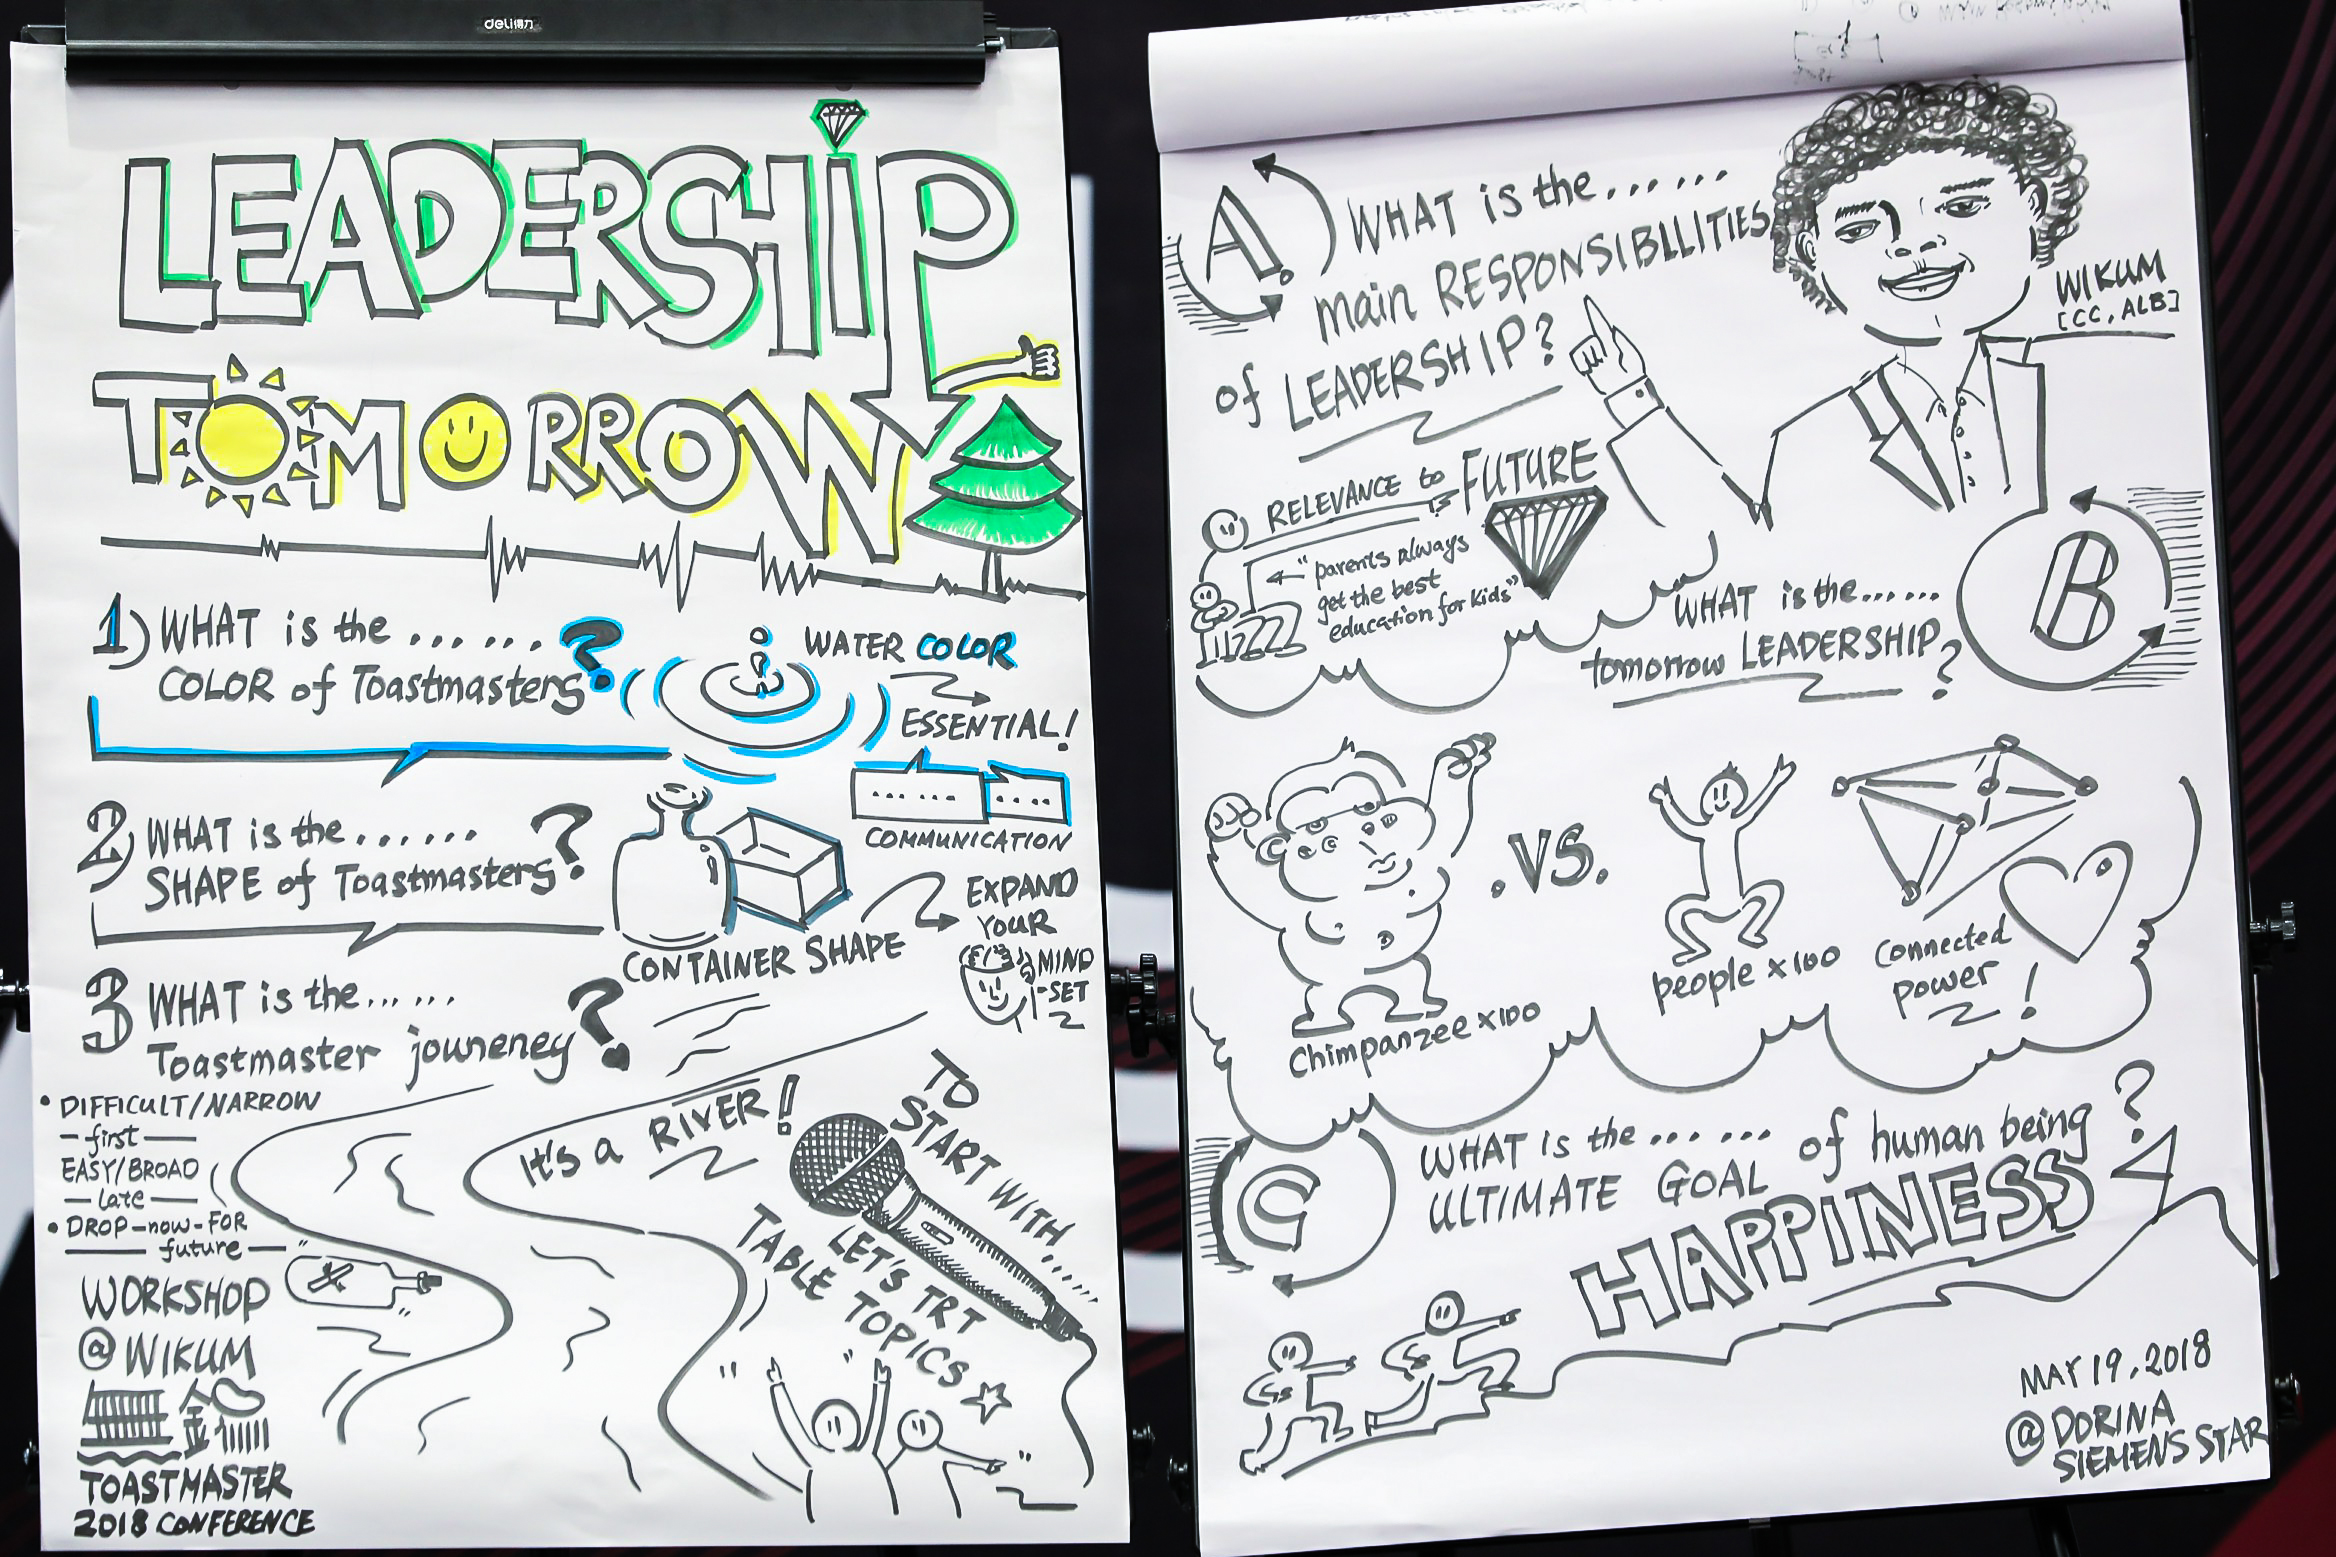 deli得力
LEADERSHIP
TOMORROW
1) WHAT is the ......
COLOR of Toastmasters?
WATER COLOR
ESSENTIAL!
COMMUNICATION
2) WHAT is the ......
SHAPE of Toastmasters?
CONTAINER SHAPE
EXPAND
YOUR
MIND
-SET
3 WHAT is the ......
Toastmaster jouneney?
• DIFFICULT/NARROW
— first —
EASY/BROAD
— late —
• DROP-now-FOR
— future — "
It's a RIVER!
TO
START WITH......
LET'S TRT
TABLE TOPICS
WORKSHOP
@WIKUM
TOASTMASTER
2018 CONFERENCE
A.
WHAT is the ......
main RESPONSIBLLITIES
of LEADERSHIP?
WIKUM
[CC, ALB]
RELEVANCE to FUTURE
"parents always
get the best
education for kids"
B
WHAT is the ......
tomorrow LEADERSHIP?
.VS.
Chimpanzee x100
people x100
Connected
power!
C
WHAT is the ...... of human being?
ULTIMATE GOAL
HAPPINESS
MAY 19, 2018
@DORINA
SIEMENS STAR